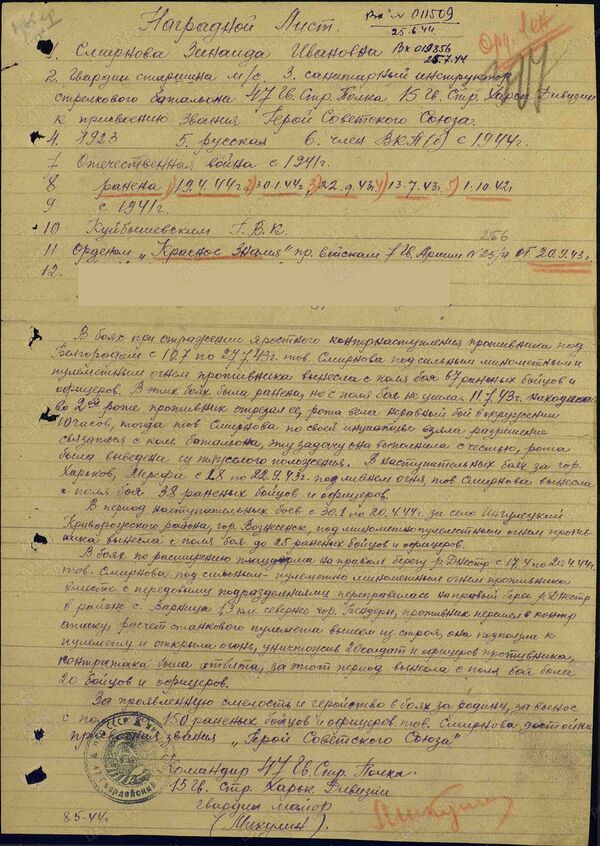 Наградной Лист.
Вх № 011509
25.6.44.
1. Смирнова Зинаида Ивановна Вх 019856
25.7.44
2. Гвардии старшина м/с, 3. санитарный инструктор
307
стрелкового батальона 47 Гв. Стр. Полка 15 Гв. Стр. Харьк. Дивизии
к присвоению звания "Герой Советского Союза."
4. 1923 5. русская 6. член ВКП(б) с 1944г.
7 Отечественная война с 1941г.
8 ранена 1) 19.4.44г. 2) 30.1.44г. 3) 22.9.43г. 4) 13.7.43г. 5) 1.10.42г.
9 с 1941г.
10 Куйбышевским Г.В.К.
256
11 Орденом "Красное Знамя" пр. войскам 7 Гв. Армии № 23/н от 20.9.43г.
12.
В боях при отражении яростного контрнаступления противника под
Белгородом с 10.7 по 27.7.43г. тов. Смирнова под сильным минометным и
пулеметным огнем противника вынесла с поля боя 67 раненых бойцов и
офицеров. В этих боях была ранена, но с поля боя не ушла. 11.7.43г. находясь
во 2ой роте противник отрезал ее, рота вела неравный бой в окружении
10 часов, тогда тов Смирнова по своей инициативе взяла разрешение
связаться с ком. батальона, эту задачу она выполнила с честью, рота
была выведена из тяжелого положения. В наступательных боях за гор.
Харьков, Мерефа с 1.8 по 22.9.43г. под огня, тов Смирнова вынесла
с поля боя 38 раненых бойцов и офицеров.
В период наступательных боев с 30.1 по 20.4.44г. за село Ингулецкий
Криворожского района, гор. Вознесенск, под минометно пулеметным огнем против-
ника вынесла с поля боя до 25 раненых бойцов и офицеров.
В боях по расширению плацдарма на правом берегу р. Днестр с 17.4 по 20.4.44г.
тов. Смирнова под сильным пулеметно минометным огнем противника
вместе с передовыми подразделениями переправилась на правый берег р. Днестр
в районе с. Варница 1,3 км. севернее гор. Бендеры, противник перешел в контр
атаку, расчет станкового пулемета вышел из строя, она подползла к
пулемету и открыла огонь, уничтожив 20 солдат и офицеров противника,
контратака была отбита, за этот период вынесла с поля боя более
20 бойцов и офицеров.
За проявленную смелость и геройство в боях за родину, за вынос
с 150 раненых бойцов и офицеров тов. Смирнова достойна
звания "Герой Советского Союза"
Командир 47 Гв. Стр. Полка
15 Гв. Стр. Харьк. Дивизии
гвардии майор
8.5.44г. (Микулин).